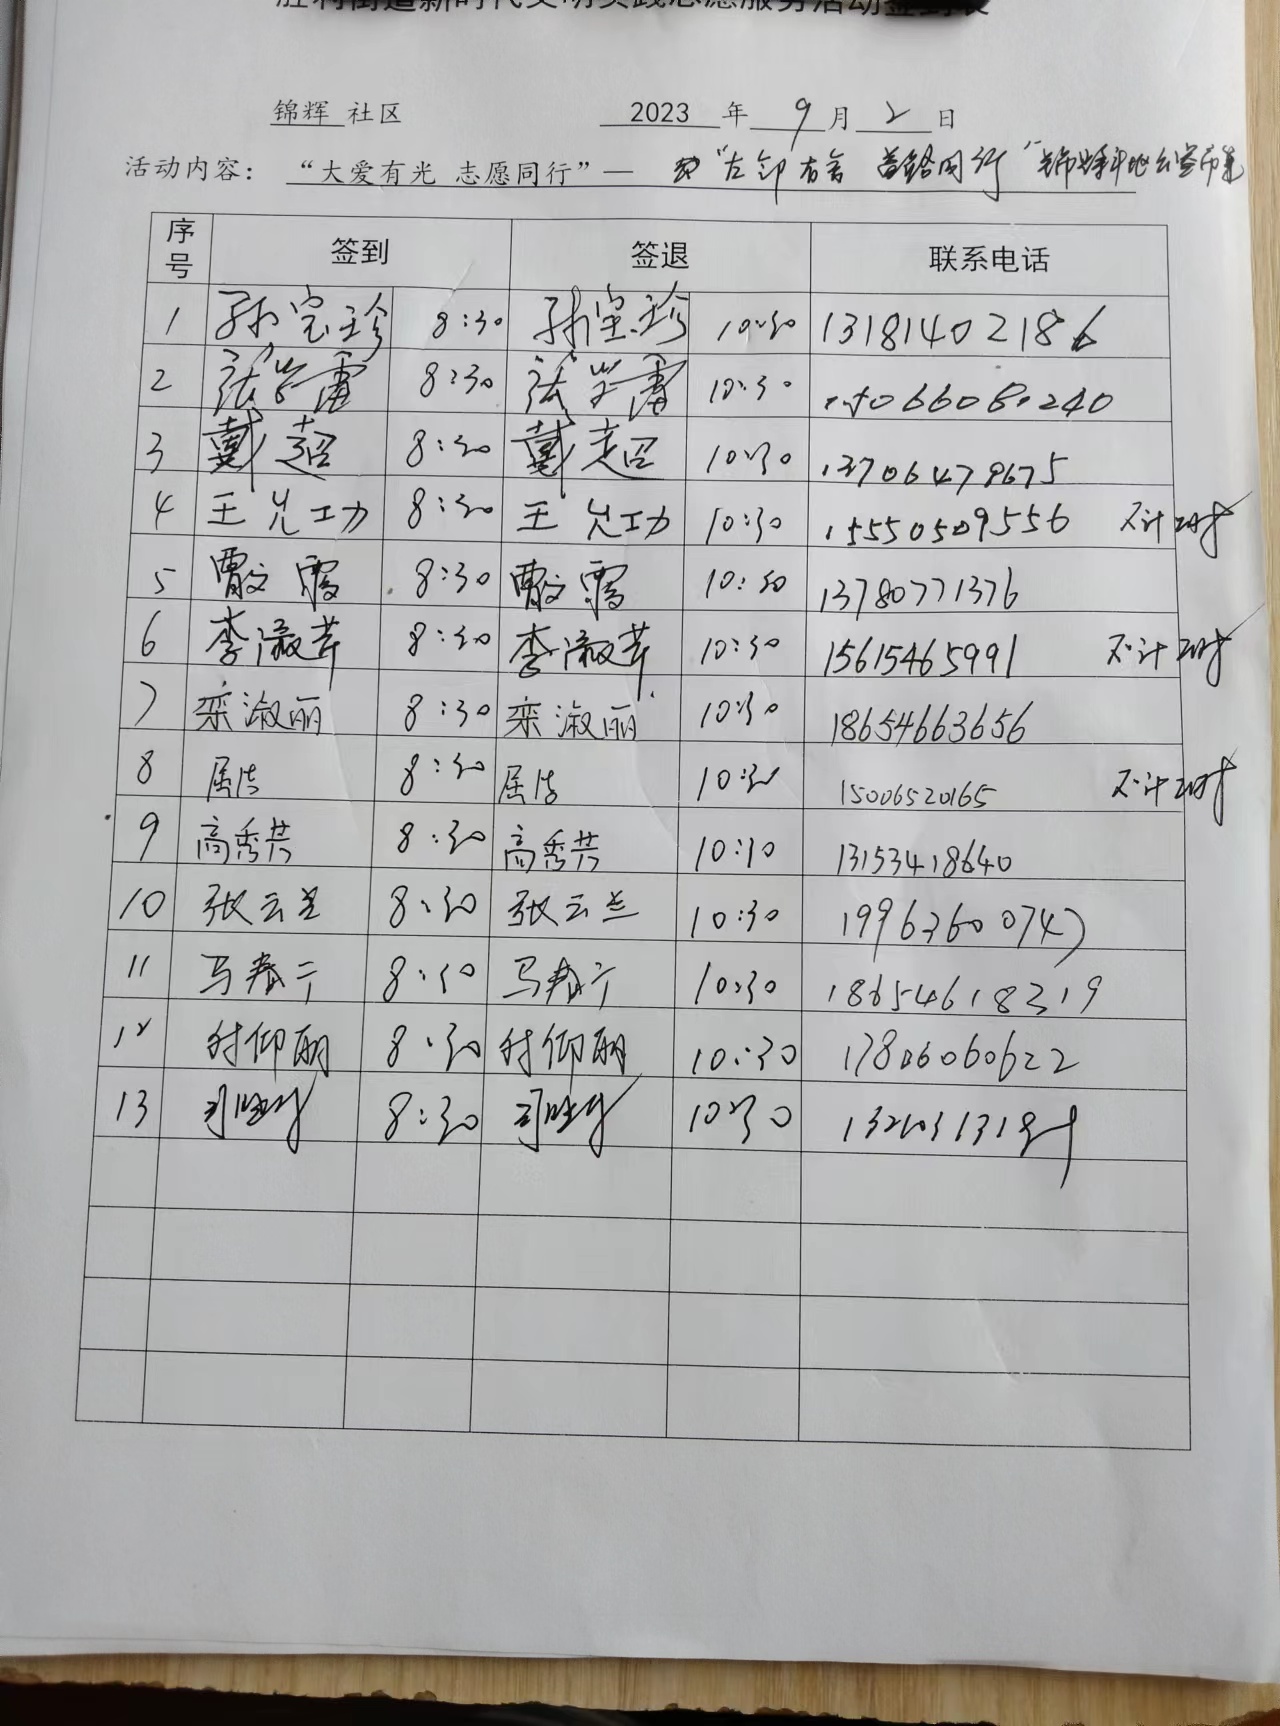 胜利街道新时代文明实践志愿服务活动签到表
锦辉 社区 2023 年 9 月 2 日
活动内容： “大爱有光 志愿同行”— “左邻右舍 同行”
序号 签到 签退 联系电话
1 孙宝珍 8:30 孙宝珍 10:30 13181402186
2 张学雷 8:30 张学雷 10:30
3 戴超 8:30 戴超 10:30 13706479675
4 王光功 8:30 王光功 10:30 15550509556 不计时
5 曹文霞 8:30 曹文霞 10:30 13780771376
6 李淑芹 8:30 李淑芹 10:30 15615465991 不计时
7 栾淑丽 8:30 栾淑丽 10:30 18654663656
8 屈洁 8:30 屈洁 10:30 15006520165 不计时
9 高秀芸 8:30 高秀芸 10:30 13153418640
10 张云兰 8:30 张云兰 10:30 19963600747
11 马春 8:30 马春 10:30 18654618319
12 付仰丽 8:30 付仰丽 10:30 17806060622
13 8:30 10:30